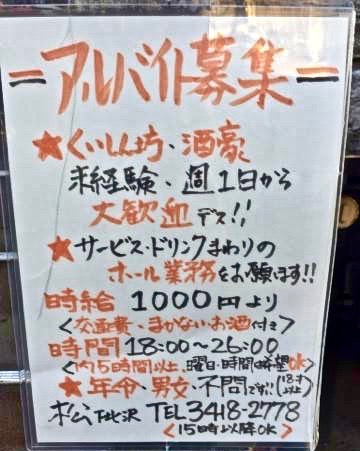 アルバイト募集
★くいしん坊・酒豪
未経験・週1日から
大歓迎デス!!
★サービス・ドリンクまわりの
ホール業務をお願いします!!
時給 1000円より
<交通費・まかない・お酒付き>
時間 18:00~26:00
<内5時間以上、曜日・時間は希望OK>
★年令・男女・不問です!!(18才以上)
松 下北沢 TEL 3418-2778
<15時以降OK>